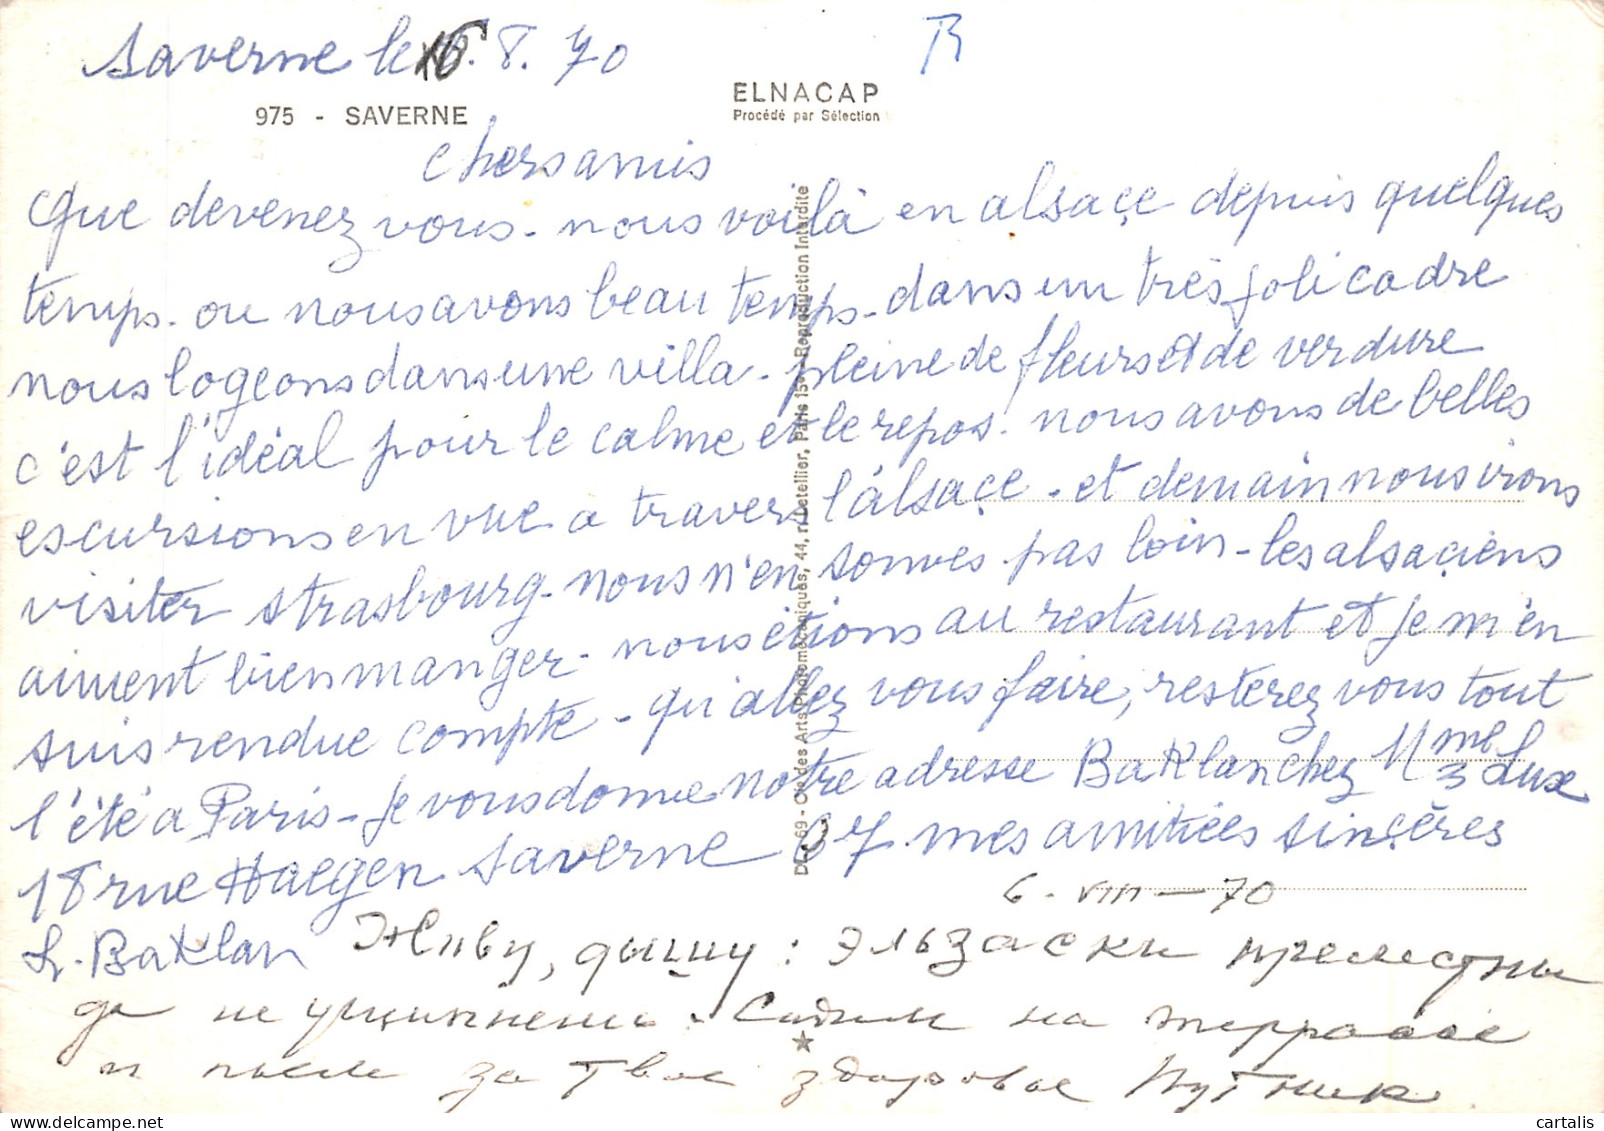 Saverne le 6.8.70
R
975 - SAVERNE
ELNACAP
Procédé par Sélection
chers amis
que devenez vous. nous voilà en alsaçe depuis quelques
temps. ou nous avons beau temps. dans un très joli cadre
nous logeons dans une villa. pleine de fleurs et de verdure
c'est l'idéal pour le calme et le repos. nous avons de belles
escursions en vue a travers l'alsaçe. et demain nous irons
visiter strasbourg. nous n'en sommes pas loin - les alsaçiens
aiment bien manger. nous étions au restaurant et je m'en
suis rendue compte. qu'allez vous faire, resterez vous tout
l'été a Paris - je vous donne notre adresse Baklan chez Mme Lux
18 rue Haegen Saverne 67 mes amitiés sinçères
6 - VIII - 70
Baklan Живу, дышу: эльзаски прелестны
да не ущипнешь. Сидим на террасе
и пьем за Твое здоровье Путник
de Arts Photomécaniques, 44, r. Letellier, Paris 15e - Reproduction Interdite